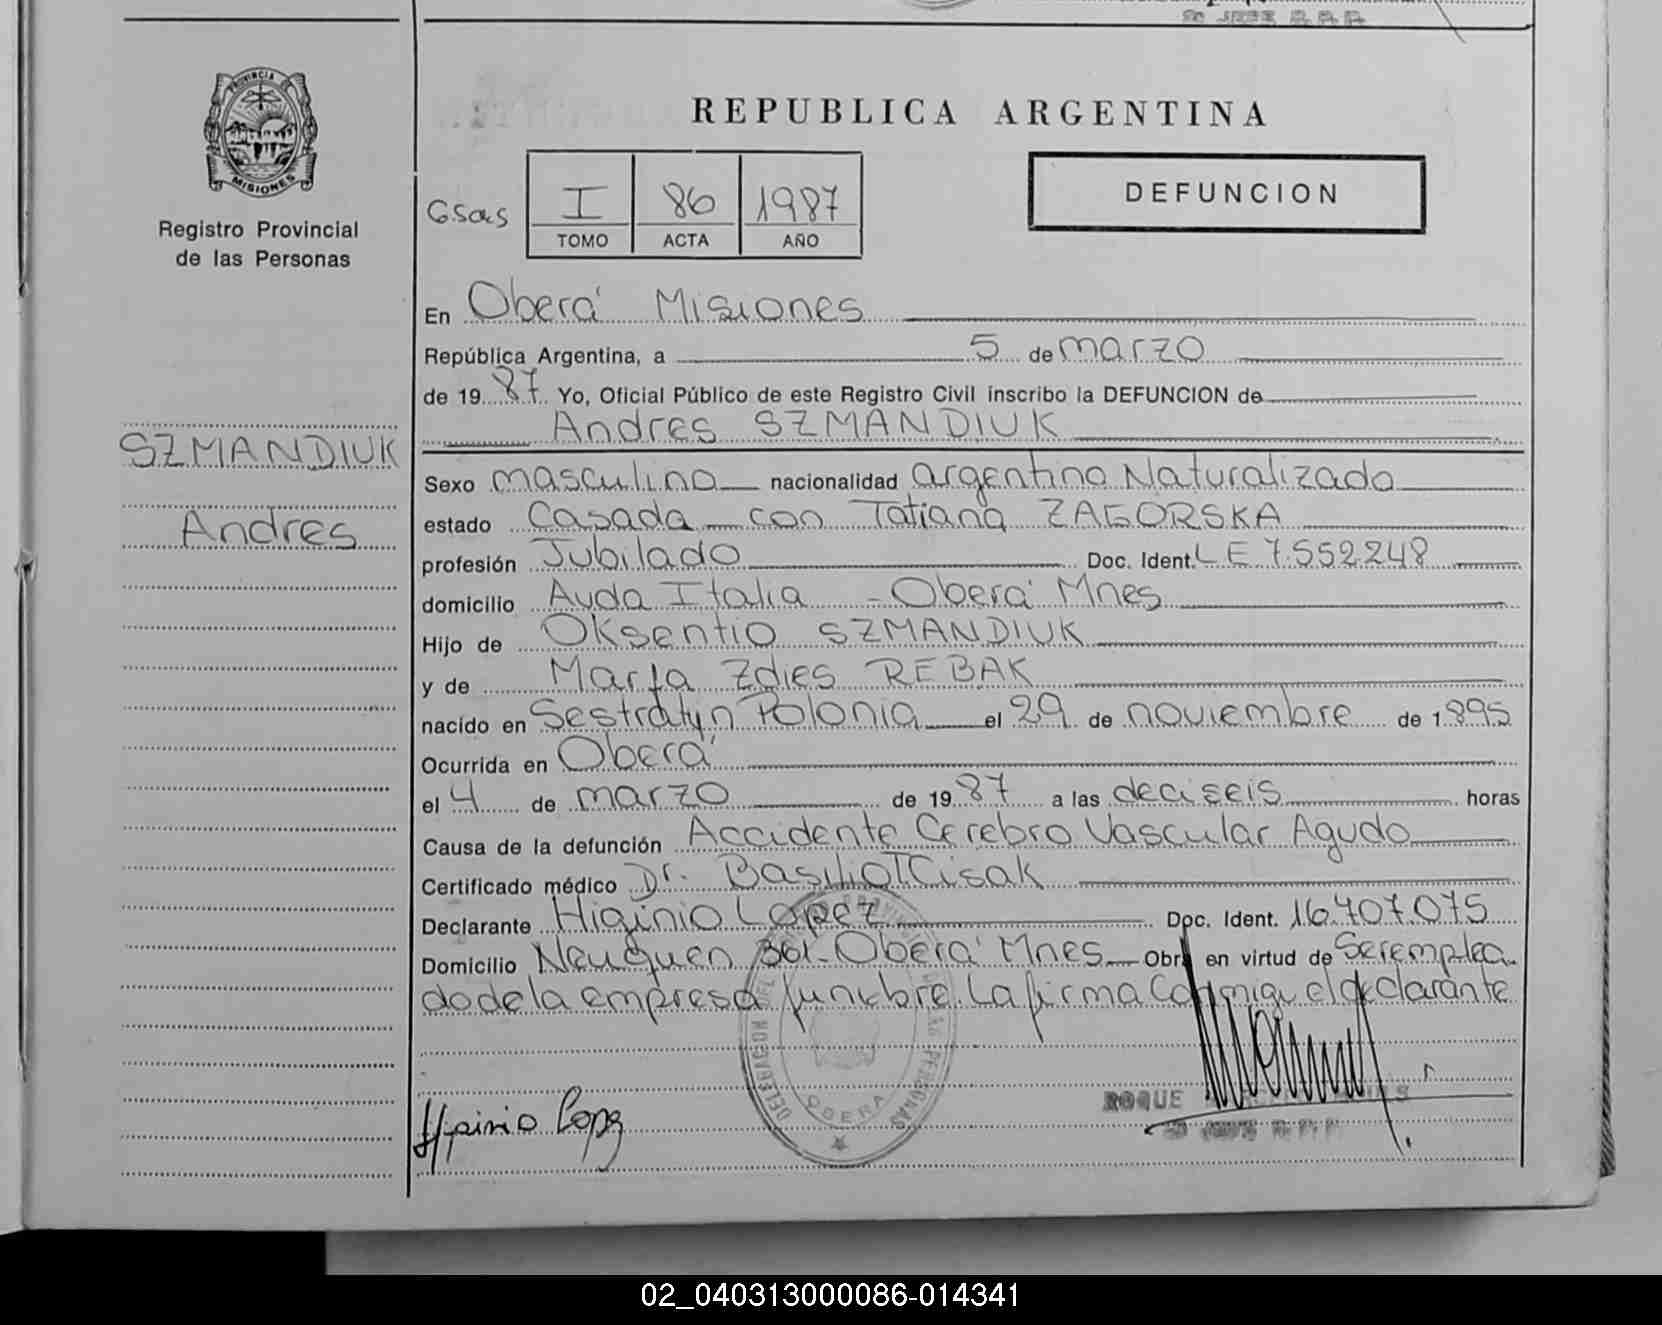 So JEFE R.P.P.
PROVINCIA
MISIONES
Registro Provincial
de las Personas
SZMANDIUK
Andres
REPUBLICA ARGENTINA
Gsas I 86 1987
TOMO ACTA AÑO
DEFUNCION
En Oberá Misiones
República Argentina, a 5 de marzo
de 19 87 Yo, Oficial Público de este Registro Civil inscribo la DEFUNCION de
Andres SZMANDIUK
Sexo masculino nacionalidad argentino Naturalizado
estado Casada con Tatiana ZAGORSKA
profesión Jubilado Doc. Ident. LE 7.552.248
domicilio Avda Italia - Oberá Mnes
Hijo de Oksentio SZMANDIUK
y de Marfa Zdies REBAK
nacido en Sestratyn Polonia el 29 de noviembre de 1895
Ocurrida en Oberá
el 4 de marzo de 19 87 a las deciseis horas
Causa de la defunción Accidente Cerebro Vascular Agudo
Certificado médico Dr. Basilio T Cisak
Declarante Higinio Lopez Doc. Ident. 16.707.075
Domicilio Neuquen 361- Oberá Mnes Obra en virtud de Ser emplea
do de la empresa funebre. La firma Conmigo el declarante
DELEGACION DE LAS PERSONAS
OBERA
Higinio Lopez
ROQUE
02_040313000086-014341